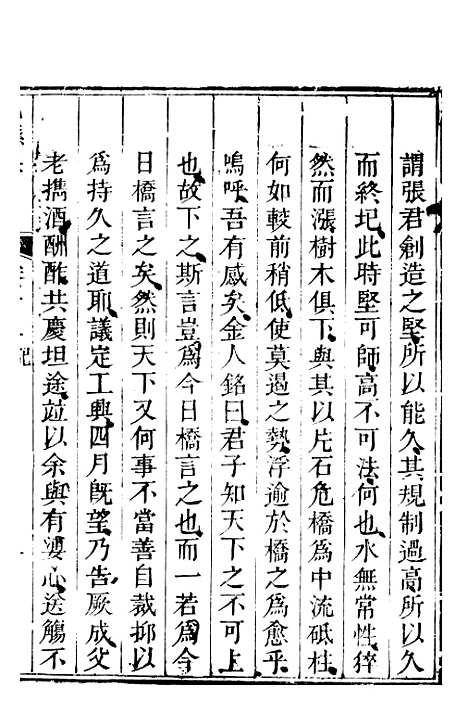 謂張君創造之堅所以能久其規制過高所以久
而終圮此時堅可師高不可法何也水無常性猝
然而漲樹木俱下與其以片石危橋為中流砥柱
何如較前稍低使莫遏之勢浮逾於橋之為愈乎
嗚呼吾有感矣金人銘曰君子知天下之不可上
也故下之斯言豈為今日橋言之也而一若為今
日橋言之矣然則天下又何事不當善自裁抑以
為持久之道耶議定工興四月既望乃告厥成父
老攜酒酬酢共慶坦途並以余與有婆心送觴不
記